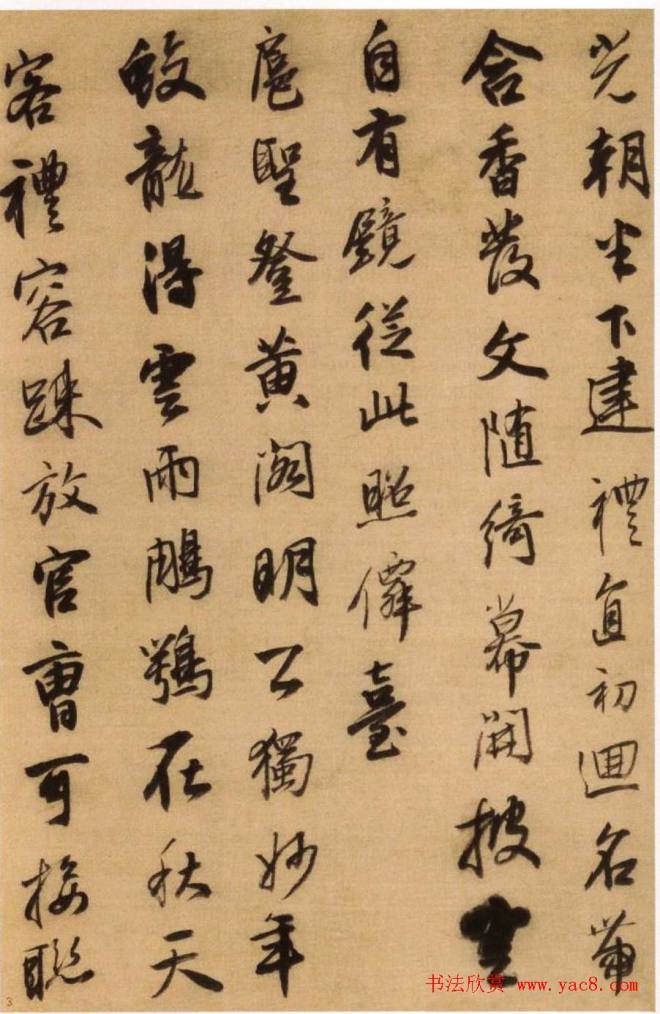 光朝半下建禮直初迴名帶
含香發文隨綺幕開披雲
自有鏡從此照僊臺
扈聖登黃閣明公獨妙年
蛟龍得雲雨鵰鶚在秋天
客禮容疎放官曹可接聯
书法欣赏 www.yac8.com
3